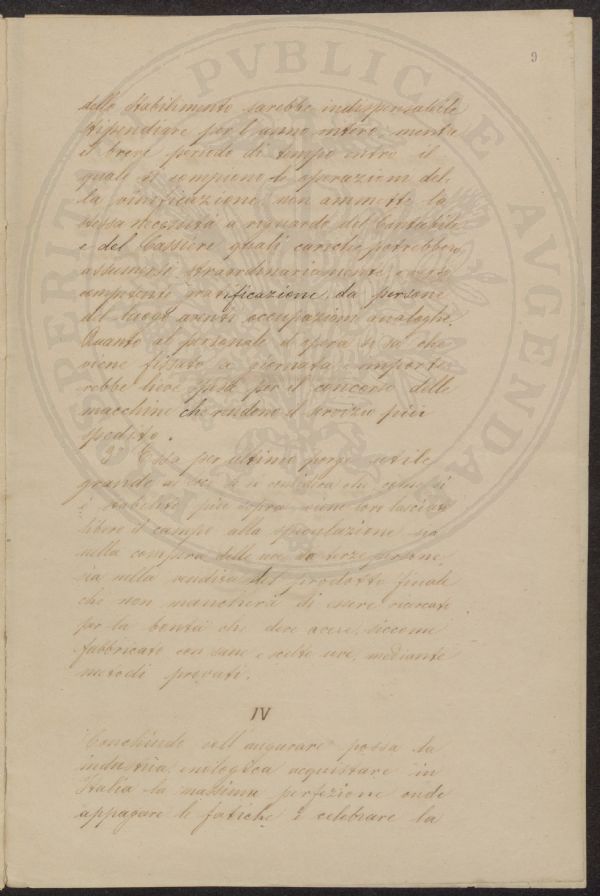 9
dello stabilimento sarebbe indispensabile
stipendiare per l'anno intero, mentre
il breve periodo di tempo entro il
quale si compiono le operazioni del-
la vinificazione, non ammette la
stessa necessità a riguardo del Contabile
e del Cassiere quali cariche potrebbero
assumersi straordinariamente, verso
competente gratificazione, da persone
del luogo aventi occupazioni analoghe.
Quanto al personale d'opera si sa che
viene fissato a giornata e importe-
rebbe lieve spesa per il concorso delle
macchine che rendono il servizio più
spedito.
Essa per ultimo porge utile
grande ai soci se si considera che come si
è stabilito più sopra, viene loro lasciato
libero il campo alla speculazione sia
nella compera delle uve da terze persone,
sia nella vendita del prodotto finale
che non mancherà di essere ricercato
per la bontà che deve avere, siccome
fabbricato con sane e scelte uve, mediante
metodi provati.
IV
Conchiudo coll'augurare possa la
industria enologica acquistare in
Italia la massima perfezione onde
appagare le fatiche e celebrare la
PUBLICAE
PROSPERITATI
AUGENDAE